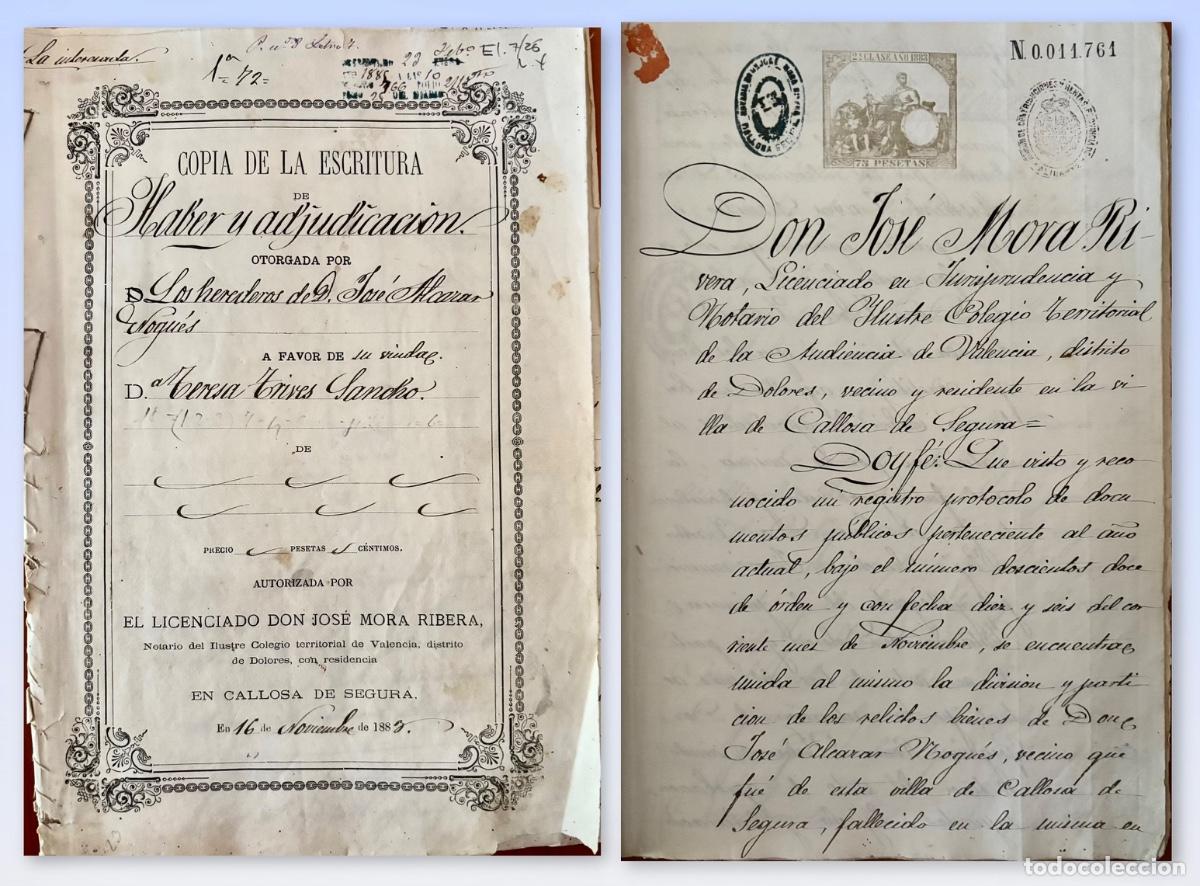 La interesada.
P. nº 8 Libro 7.
1ª = 72 =
22
E1.7/26
COPIA DE LA ESCRITURA
DE
Haber y adjudicación.
OTORGADA POR
D Los herederos de D. José Alcazar
Nogués
A FAVOR DE su viuda
D.ª Teresa Trives Sancho.
DE
PRECIO PESETAS CÉNTIMOS.
AUTORIZADA POR
EL LICENCIADO DON JOSÉ MORA RIBERA,
Notario del Ilustre Colegio territorial de Valencia, distrito
de Dolores, con residencia
EN CALLOSA DE SEGURA.
En 16 de Noviembre de 1883.
N.0.011.761
2ª CLASE AÑO 1883
75 PESETAS
Don José Mora Ri-
vera, Licenciado en Jurisprudencia y
Notario del Ilustre Colegio Territorial
de la Audiencia de Valencia, distrito
de Dolores, vecino y residente en la vi
lla de Callosa de Segura=
Doy fé: Que visto y reco
nocido mi registro protocolo de docu
mentos públicos perteneciente al año
actual, bajo el número doscientos doce
de órden y con fecha diez y seis del cor
riente mes de Noviembre, se encuentra
unida al mismo la division y parti
cion de los relictos bienes de Don
José Alcazar Nogués, vecino que
fué de esta villa de Callosa de
Segura, fallecido en la misma en
todocoleccion